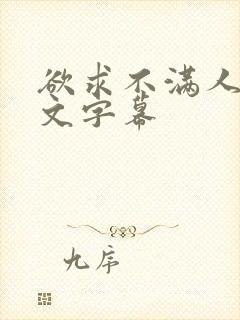 欲求不满人
文字幕
九序